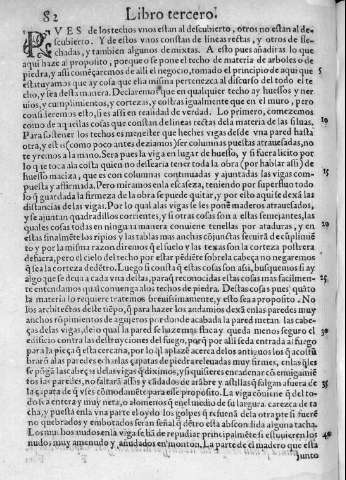 82 Libro tercero.
PVES de los techos vnos estan al descubierto, otros no estan al de-
scubierto. Y de estos vnos constan de lineas rectas, y otros de fle-
chadas, y tambien algunos de mixtas. A esto pues añadiras lo que
aqui haze al proposito, porque o se pone el techo de materia de arboles o de
piedra, y assi començaremos de alli el negocio, tomado el principio de aqui que 5
estatuyamos que ay cola que ella misma pertenezca al discurso del todo el te
cho, y sea desta manera. Declaremos que en qualquier techo ay huessos y ner
uios, y cumplimientos, y cortezas, y costras igualmente que en el muro, pero
consideremos esto, si es assi en realidad de verdad. Lo primero, comezemos
como de aquellas cosas que constan de lineas rectas dela materia de las siluas, 10
Para sostener los techos es menester que heches vigas desde vna pared hasta
otra, y estas (como poco antes deziamos) ser columnas puestas atrauesadas, no
te yremos a la mano. Sera pues la viga en lugar de huesso, y si fuera licito por
lo que toca ala costa quien no dessearia tener toda la obra (por hablar assi) de
huesso maziça, que es con columnas continuadas y ajuntadas las vigas com- 15
puesta y affirmada. Pero miramos en la escaseza, teniendo por superfluo todo
lo q̃ guardada la firmeza de la obra se puede quitar, y por esto aqui se dexã las
distancias de las vigas. Por lo qual alas vigas se les ponẽ maderos atrauessados,
y se ajuntan quadrillos corrientes, y si otras cosas son a estas semejantes, las
quales cosas todas en ninguna manera conuiene tenellas por ataduras, y en 20
estas finalmẽte los ripios y las tablas mas anchas cõjuntas seruirã de cũplimiẽ
to y por la misma razon diremos q̃ el suelo y las tejas son la corteza postrera
defuera, pero el cielo del techo por estar pẽdiẽte sobre la cabeça no negaremos
q̃ sea la corteza de dẽtro. Luego si consta q̃ estas cosas son assi, busquemos si ay
algo que se deua a cada vna destas, para q̃ reconocidas ellas cosas mas facilmen- 25
te entendamos qual conuenga alos techos de piedra. Destas cosas pues quãto
la materia lo requiere tratemos breuissimamente, y esto sea a proposito. No
los architectos deste tiẽpo, q̃ para hazer los andamios dexã en las paredes muy
anchos rõpimientos de agujeros por donde acabada la pared metan las cabe-
ças delas vigas, de lo qual la pared se haze mas flaca y queda menos seguro el 30
edificio contra las destruyciones del fuego, porq̃ por alli se da entrada al fuego
para la pieça q̃ esta cercana, por lo q̃l aplazẽ acerca delos antiguos los q̃ acostũ
brarõ alas paredes echarlas çapatas de piedra releuadas muy firmes, en las q̃les
se põgã las cabeças delas vigas q̃ diximos, y si quisieres encadenar cõ emigamiẽ
tos las paredes, no faltarã assi y cãdados de arãbre y astillas q̃ salgan afuera de 35
la çapata de q̃ vses cõmodamẽte para este proposito. La viga conuiene q̃ del to-
do sea entera y muy neta, o alomenos q̃ en el medio de su largura carezca de ta
cha, y puesta en la vna parte el oydo los golpes q̃ resuenã dela otra pte si fuerẽ
no quebrados y embotados seran señal q̃ dẽtro esta abscondida alguna tacha.
Los muchos nudos en la viga se hã de repudiar principalmẽte si estuuieren los 40
nudos muy amenudo y añudados en monton. La parte de el madero que esta
junto